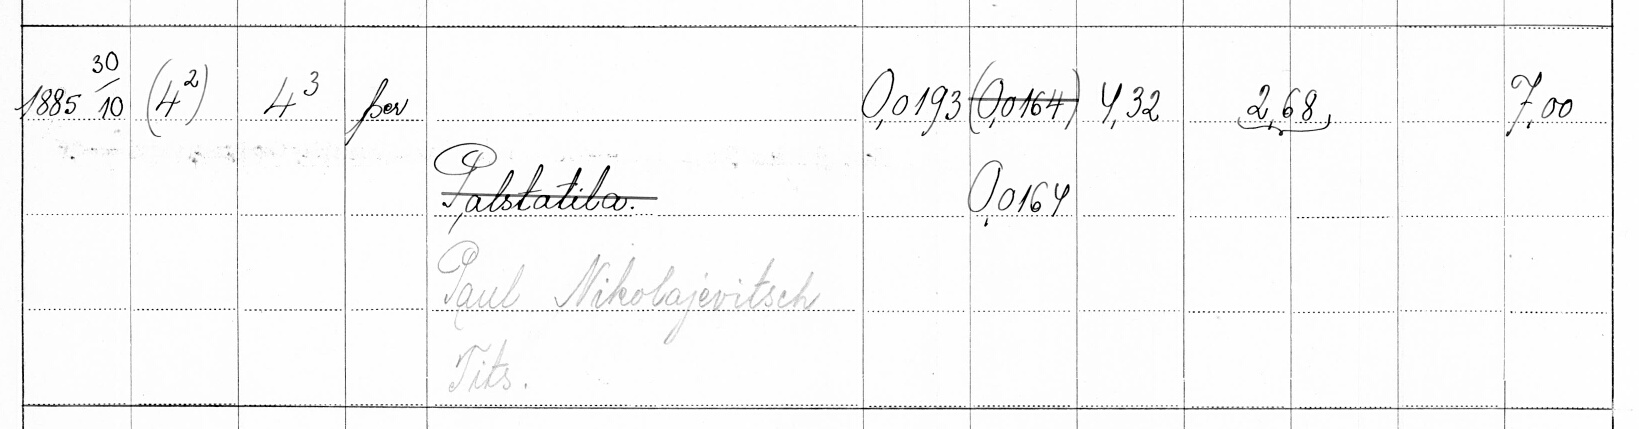 1885 30/10 (4²) 4³ per 0,0193 (0,0164) 4,32 2,68 7,00
Palstatila. 0,0164
Paul Nikolajevitsch
Tits.